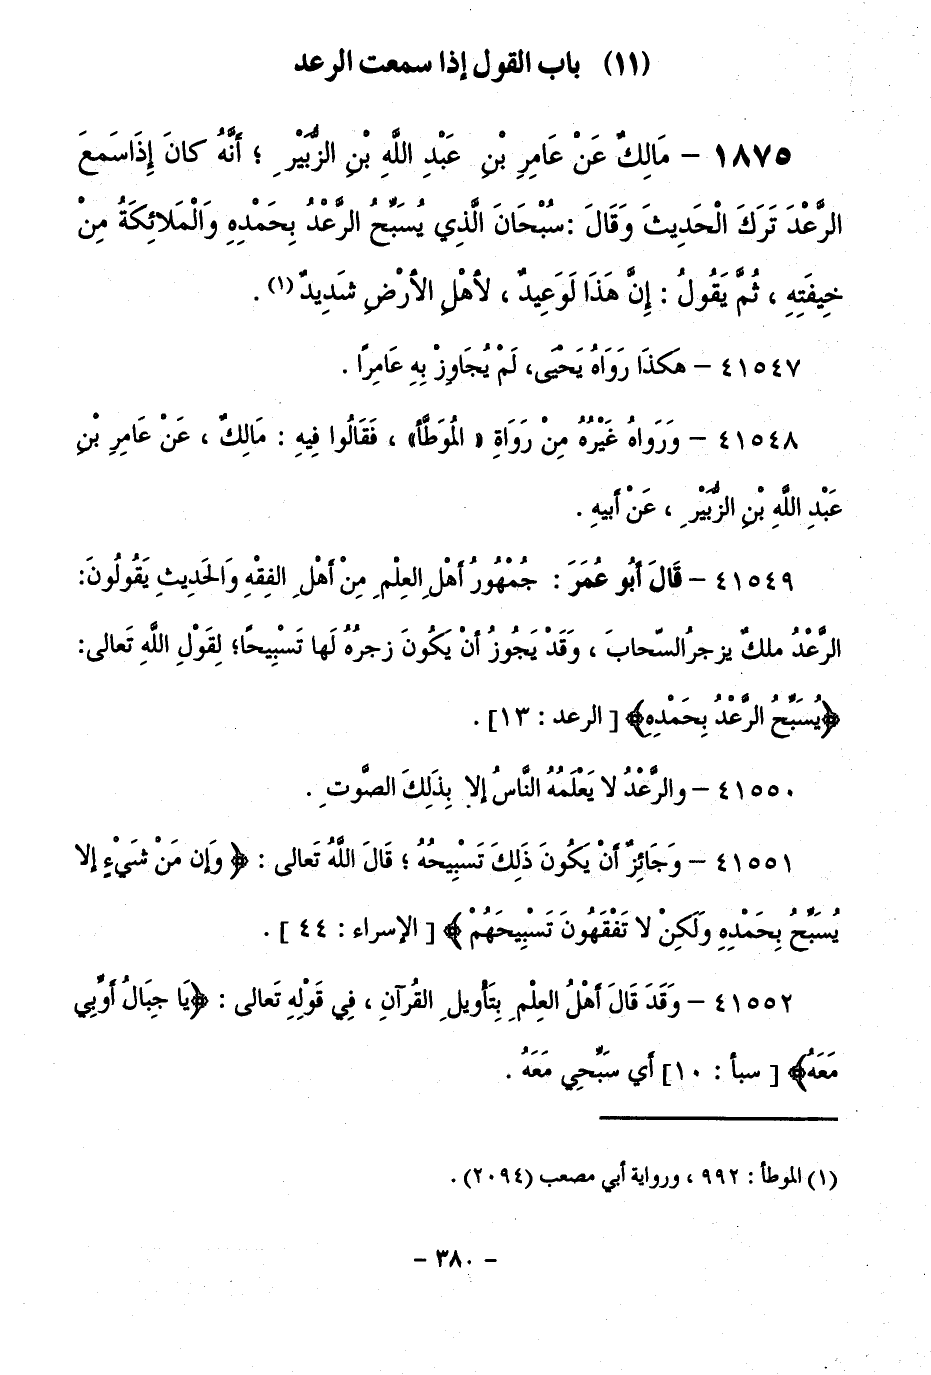 (١١) باب القول إذا سمعت الرعد
١٨٧٥ – مَالِكٌ عَنْ عَامِرِ بْنِ عَبْدِ اللَّهِ بْنِ الزُّبَيْرِ ؛ أَنَّهُ كانَ إِذَاسَمِعَ
الرَّعْدَ تَرَكَ الْحَدِيثَ وَقَالَ :سُبْحَانَ الَّذِي يُسَبِّحُ الرَّعْدُ بِحَمْدِهِ وَالْمَلائِكَةُ مِنْ
خِيفَتِهِ ، ثُمَّ يَقُولُ : إِنَّ هَذَا لَوَعِيدٌ ، لأهْلِ الأرْضِ شَدِيدٌ (١) .
٤١٥٤٧ – هَكذَا رَوَاهُ يَحْيَى، لَمْ يُجَاوِزْ بِهِ عَامِرًا .
٤١٥٤٨ – وَرَواهُ غَيْرُهُ مِنْ رَوَاةِ « المُوَطَّأ» ، فَقَالُوا فِيهِ : مَالِكٌ ، عَنْ عَامِرِ بْنِ
عَبْدِ اللَّهِ بْنِ الزُّبَيْرِ ، عَنْ أَبيهِ .
٤١٥٤٩ – قَالَ أَبُو عُمَرَ : جُمْهُورُ أهْلِ العِلْمِ مِنْ أَهْلِ الفِقْهِ وَالحَدِيثِ يَقُولُونَ:
الرَّعْدُ ملكٌ يزجرُ السّحابَ ، وَقَدْ يَجُوزُ أنْ يَكُونَ زجرُهُ لَها تَسْبِيحًا؛ لِقَوْلِ اللَّهِ تَعالى:
﴿يُسَبِّحُ الرَّعْدُ بِحَمْدِهِ﴾ [ الرعد : ١٣] .
٤١٥٥٠ – والرَّعْدُ لا يَعْلَمُهُ النَّاسُ إلا بِذَلِكَ الصَّوتِ .
٤١٥٥١ – وَجَائِزٌ أنْ يَكُونَ ذَلِكَ تَسْبِيحُهُ ؛ قَالَ اللَّهُ تَعالى : ﴿ وَإن مَنْ شَيْءٍ إلا
يُسَبِّحُ بِحَمْدِهِ وَلَكِنْ لا تَفْقَهُونَ تَسْبِيحَهُمْ ﴾ [ الإسراء : ٤٤ ] .
٤١٥٥٢ – وَقَدَ قَالَ أهْلُ العِلْمِ بِتَأويلِ القُرآنِ ، فِي قَوْلِهِ تَعالى : ﴿يَا جِبَالُ أَوِّبِي
مَعَهُ﴾ [ سبأ : ١٠] أَي سَبِّحِي مَعَهُ .
(١) الموطأ : ٩٩٢ ، ورواية أبي مصعب (٢٠٩٤) .
– ٣٨٠ –